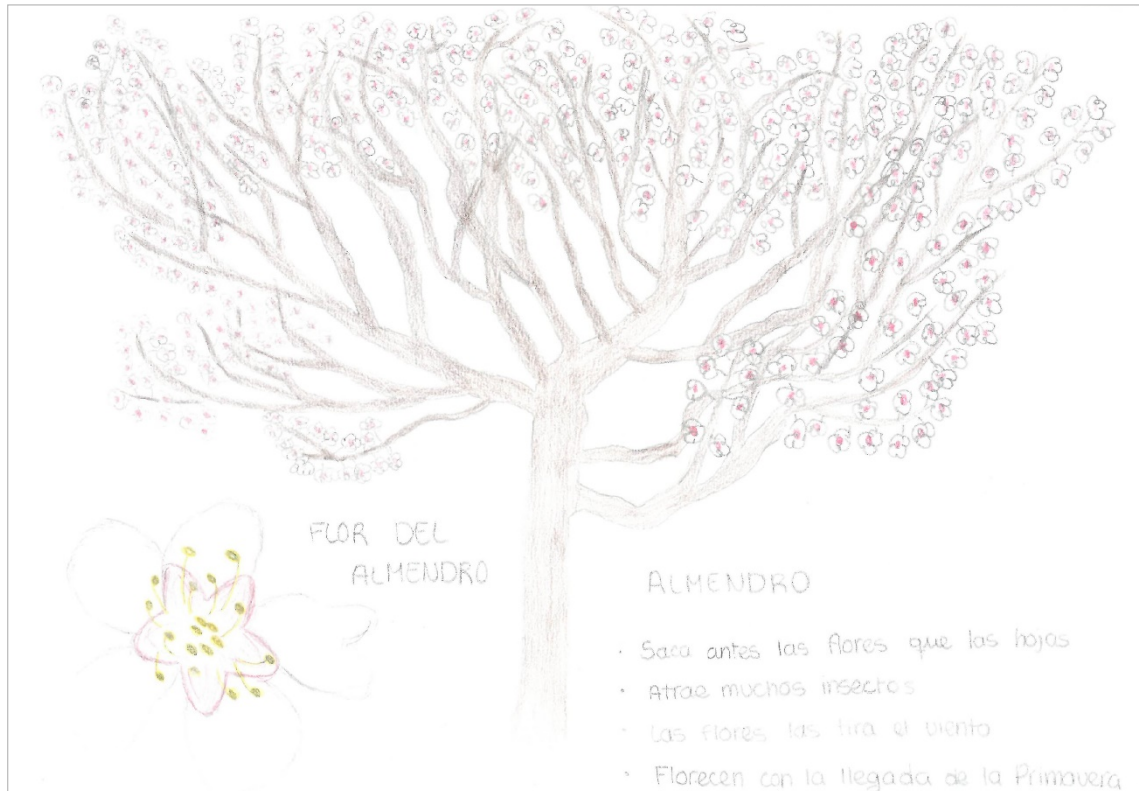 FLOR DEL
ALMENDRO
ALMENDRO
· Saca antes las flores que las hojas
· Atrae muchos insectos
· Las flores las tira el viento
· Florecen con la llegada de la Primavera